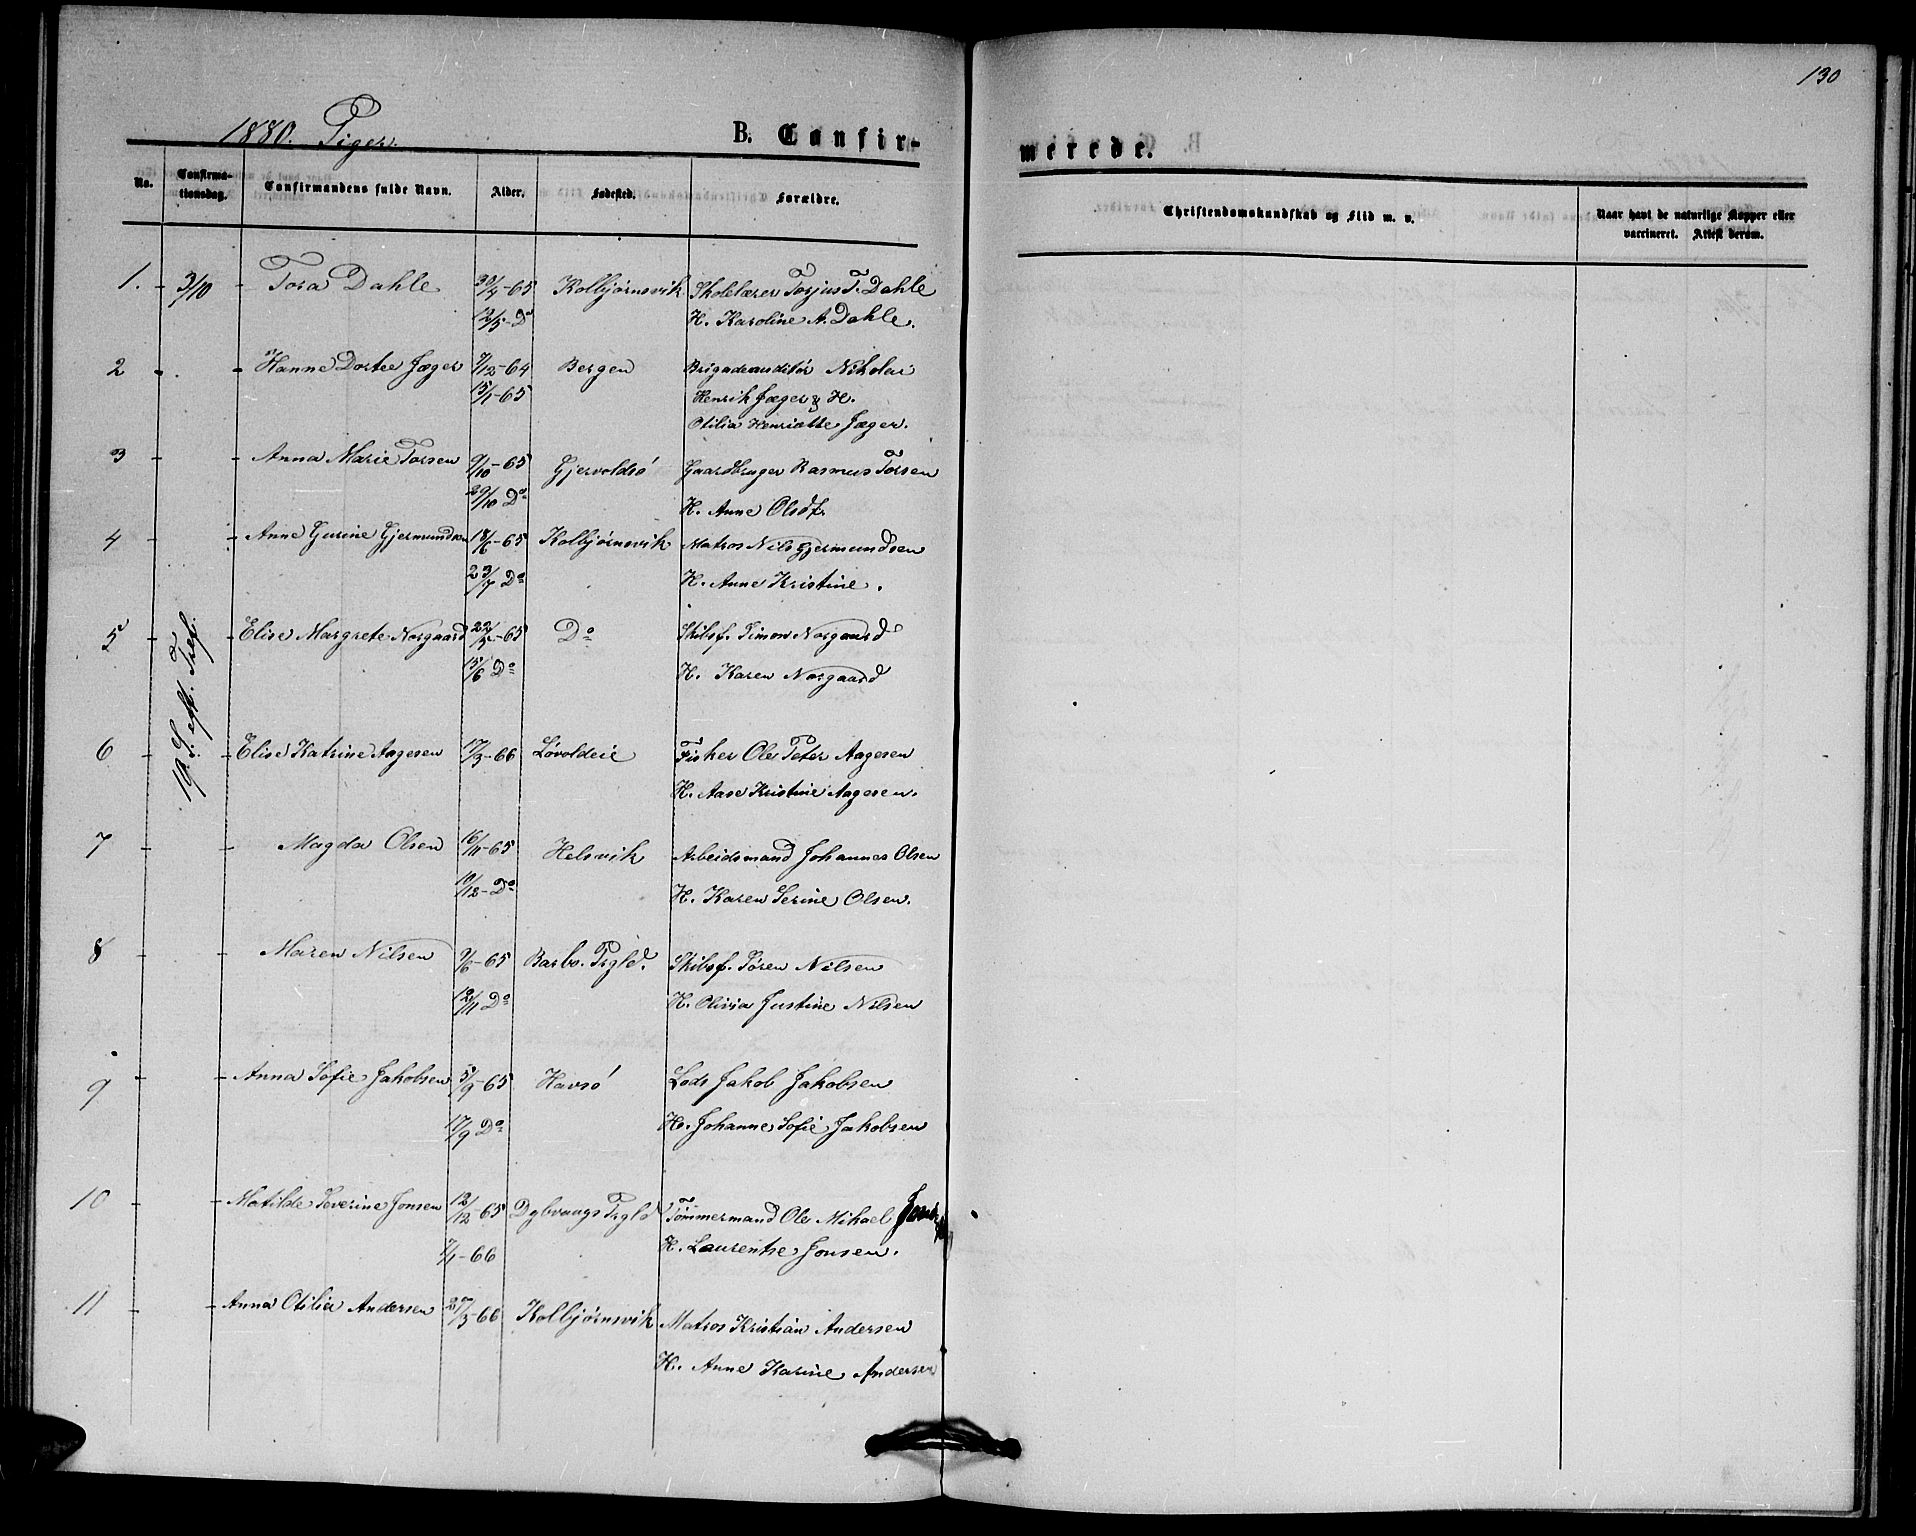 130
1880. Piger.
B. Confir-
merede.
No. Confirma-tionsdag. Confirmandens fulde Navn. Alder. Fødested. Forældre.
Christendomskundskab og Flid m. v. Naar havt de naturlige Kopper eller vaccineret. Attest derom.
1. 3/10 Tora Dahle 30/4-65 Kolbjørnsvik Skolelærer Torjus T. Dahle
12/5-Do H. Karoline A. Dahle.
2 Hanne Dortee Jæger 7/12-64 Bergen Brigadeauditør Nikolai
15/1-65 Henrik Jæger & H.
Otilia Henriette Jæger.
3 Anna Marie Torsen 9/10-65 Gjervoldsø Gaardbruger Rasmus Torsen
29/10 Do H. Anne Olsdt.
4 Anne Gurine Gjermundsen 18/6-65 Kolbjørnsvik Matros Nils Gjermundsen
23/7 Do H. Anne Kristine.
19. S. eft. Tref.
5 Elise Margrete Norgaard 22/5-65 Do Skibsf. Simon Norgaard
15/6 Do H. Karen Norgaard
6 Elise Katrine Aagesen 17/3-66 Løvoldeie Fisker Ole Peter Aagesen
H. Aase Kristine Aagesen.
7 Magda Olsen 16/11-65 Helsvik Arbeidsmand Johannes Olsen
10/12-Do H. Karen Serine Olsen.
8 Maren Nilsen 9/6-65 Barbo. Prgld. Skibsf. Søren Nilsen
12/11 Do H. Olivia Justine Nilsen
9 Anna Sofie Jakobsen 5/9-65 Havsø Lods Jakob Jakobsen
17/9 Do H. Johanne Sofie Jakobsen
10 Matilde Severine Jonsen 12/12-65 Dybvaags Prgld Tømmermand Ole Mikael
7/1-66 H. Laurentse Jonsen.
11 Anna Otilie Andersen 27/3-66 Kolbjørnsvik Matros Kristian Andersen
H. Anne Karine Andersen